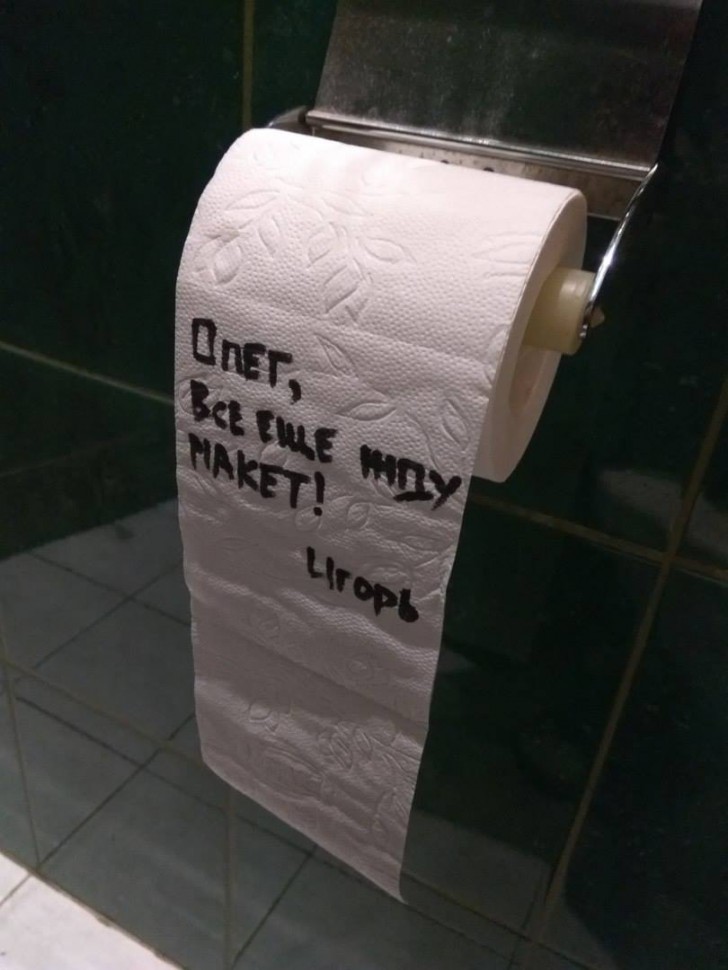 Олег,
ВСЕ ЕЩЕ ЖДУ
МАКЕТ!
Игорь